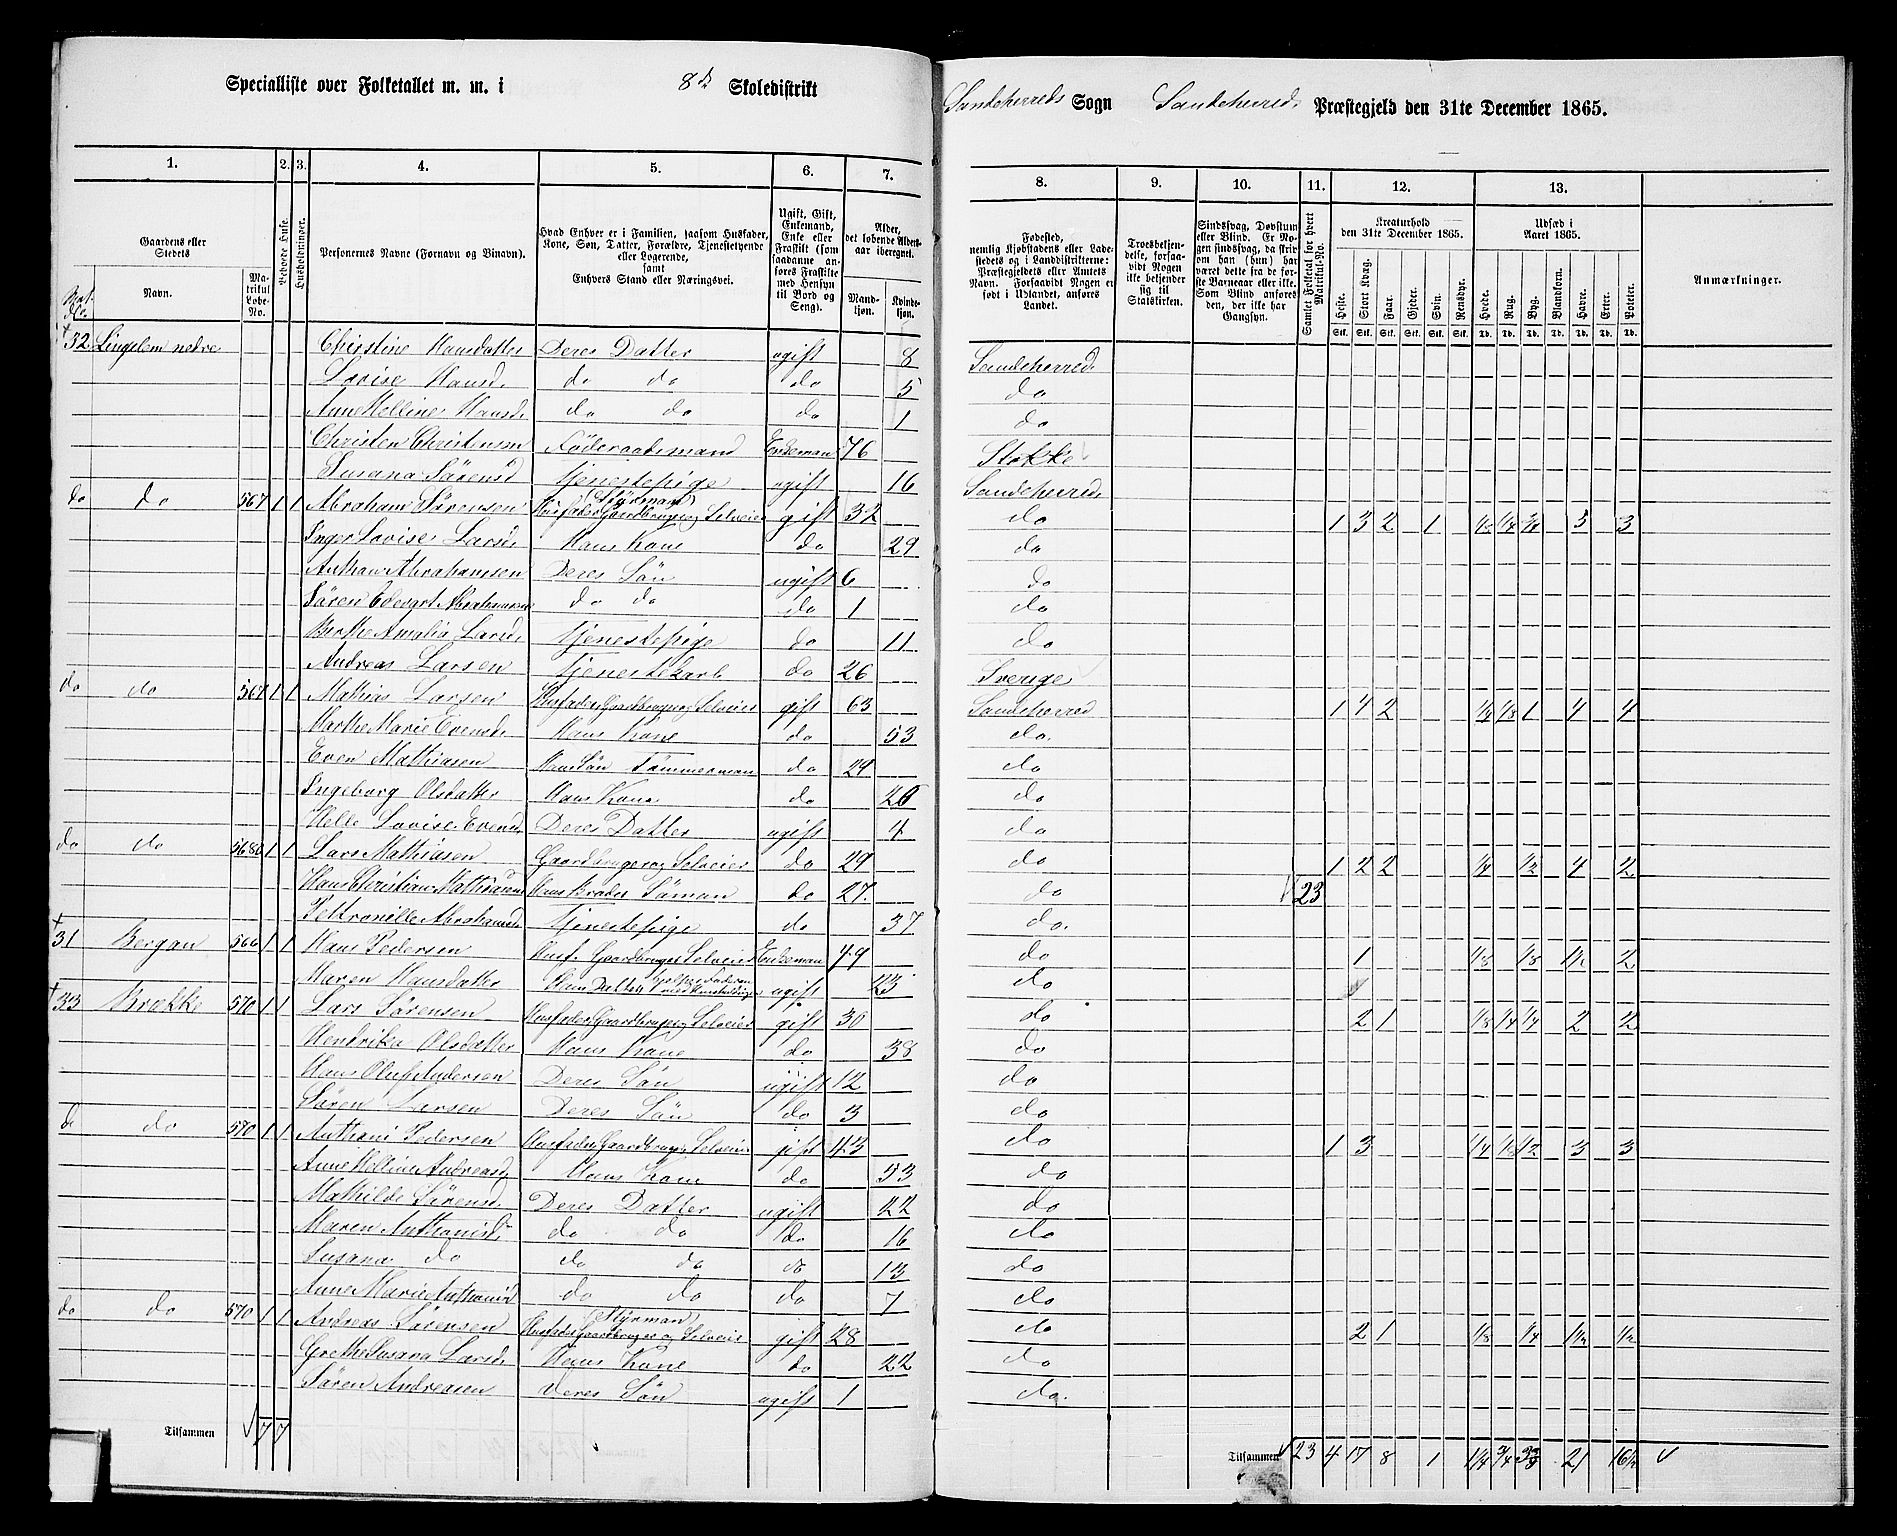 Specialliste over Folketallet m. m. i 8de Skoledistrikt
Sandeherreds Sogn Sandeherreds Præstegjeld den 31te December 1865.
1. 2. 3. 4. 5. 6. 7.
8. 9. 10. 11. 12. 13.
Gaardens eller Stedets
Navn.
Matrikul Løbe-No.
Beboede Huse.
Husholdninger.
Personernes Navne (Fornavn og Binavn).
Hvad Enhver er i Familien, saasom Husfader, Kone, Søn, Datter, Forældre, Tjenestetyende eller Logerende, samt Enhvers Stand eller Næringsvei.
Ugift, Gift, Enkemand, Enke eller Fraskilt (som saadanne anføres Fraskilte med Hensyn til Bord og Seng).
Alder, det løbende Alders-aar iberegnet.
Mandkjøn.
Kvindekjøn.
Fødested, nemlig Kjøbstadens eller Ladestedets og i Landdistrikterne: Præstegjeldets eller Amtets Navn. Forsaavidt Nogen er født i Udlandet, anføres Landet.
Troesbekjendelse, forsaavidt Nogen ikke bekjender sig til Statskirken.
Sindssvag, Døvstum eller Blind. Er Nogen sindssvag, da skrives om han (hun) har været dette fra de første Barneaar eller ikke. Som Blind anføres den, der ikke har Gangsyn.
Samlet Folketal for hvert Matrikul-No.
Kreaturhold den 31te December 1865.
Heste. Stort Kvæg. Faar. Gjeder. Svin. Rensdyr.
Stk. Stk. Stk. Stk. Stk. Stk.
Udsæd i Aaret 1865.
Hvede. Rug. Byg. Blandkorn. Havre. Erter. Poteter.
Td. Td. Td. Td. Td. Td. Td.
Anmærkninger.
Mat. No.
32 Lingelem nedre Christine Hansdatter Deres Datter ugift 8 Sandeherred
Lovise Hansd. do do do 5 do
Anne Helline Hansd. do do do 1 do
Christen Christensen Føderaadsmand Enkemand 76 Stokke
Susana Sørensd Tjenestepige ugift 16 Sandeherred
do do 567 1 1 Abraham Sørensen Husfader Gaardbruger Selveier Styrmand gift 32 do 1 3 2 1 1/2 1/4 3/4 3 3
Inger Lovise Larsd. Hans Kone do 29 do
Anthon Abrahamsen Deres Søn ugift 6 do
Søren Edevart Abrahamsen do do do 1 do
Berthe Amalia Larsd. Tjenestepige do 11 do
Andreas Larsen Tjenestekarl do 26 Sverige
do do 567 1 1 Mathias Larsen Husfader Gaardbruger Selveier gift 63 Sandeherred 1 4 2 1/4 1/8 1 4 4
Marthe Marie Evensd. Hans Kone do 53 do.
Even Mathiasen Hans Søn Tømmerman do 29 do
Ingeborg Olsdatter Hans Kone do 26 do
Helle Lovise Evensd. Deres Datter ugift 4 do
do do 568 1 1 Lars Mathiasen Gaardbruger og Selveier do 29 do 1 2 2 1/4 1/2 4 2
Hans Christian Mathiasen Hans Broder Søman do 27. do 23
Pettronille Abrahamsd. Tjenestepige do 37 do.
31 Bergan 566 1 1 Hans Pedersen Husf. Gaardbruger Selveier Enkeman 49 do 1 1/8 1/8 1 1/2 2
Maren Hansdatter Hans Datter ugift 23 do
33 Brække 570 1 1 Lars Sørensen Husfader Gaardbruger Selveier gift 30 do 2 1 1/8 1/4 1/4 2 2
Hendrika Olsdatter Hans Kone do 38 do
Hans Oluf Andersen Deres Søn ugift 12 do
Søren Larsen Deres Søn do 3 do
do do 570 1 1 Anthoni Pedersen Husfader Gaardbruger Selveier gift 43 do 1 3 1/4 1/8 1/2 3 3
Anne Helline Andreasd. Hans Kone do 53 do
Mathilde Sørensd. Deres Datter ugift 22 do
Maren Anthonisd do do do 16 do
Susana do do do do 13 do
Anne Marie Anthonisd do do do 7 do
do do 570 1 1 Andreas Sørensen Husfader Gaardbruger og Selveier Styrman gift 28 do 2 1 1/8 1/4 1 1/2 1/2
Grethe Susana Larsd. Hans Kone do 22 do
Søren Andreasen Deres Søn ugift 1 do.
Tilsammen 7 7
Tilsammen 23 4 17 8 1 1 1/4 3/4 3 3/8 21 16 1/2